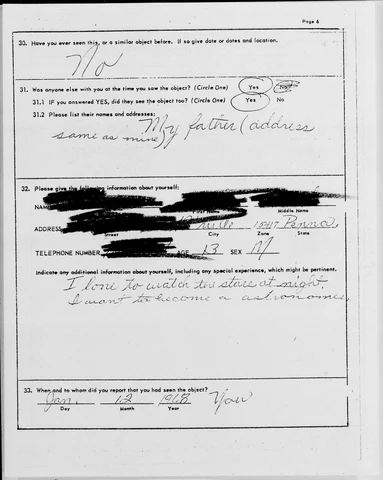 Page 6
30. Have you ever seen this, or a similar object before. If so give date or dates and location.
No
31. Was anyone else with you at the time you saw the object? (Circle One) Yes No
31.1 IF you answered YES, did they see the object too? (Circle One) Yes No
31.2 Please list their names and addresses:
My father (address
same as mine)
32. Please give the following information about yourself:
NAME
First Name Middle Name
ADDRESS 15147 Penna.
Street City Zone State
TELEPHONE NUMBER AGE 13 SEX M
Indicate any additional information about yourself, including any special experience, which might be pertinent.
I love to watch the stars at night.
I want to become a astronomer.
33. When and to whom did you report that you had seen the object?
Jan. 12 1968 You
Day Month Year